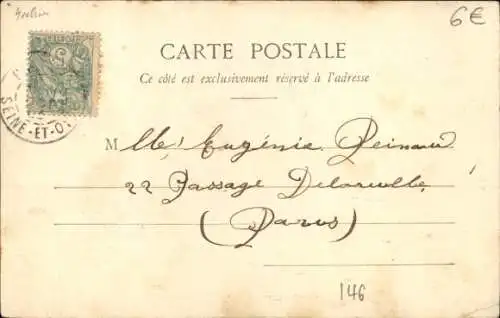 6€
CARTE POSTALE
Ce côté est exclusivement réservé à l'adresse
SEINE-ET-O
Mlle Eugénie
22 Passage
(Paris)
146